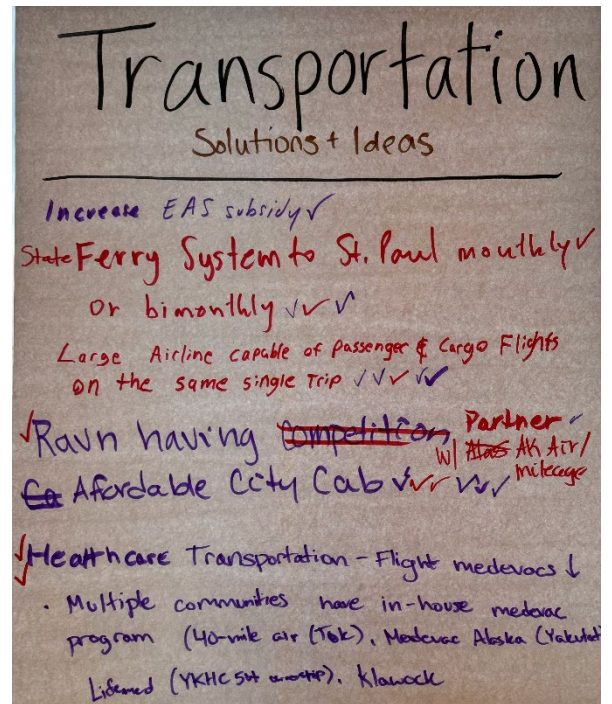 Transportation
Solutions + Ideas
Increase EAS subsidy ✓
State Ferry System to St. Paul monthly ✓
or bimonthly ✓✓✓
Large Airline capable of Passenger & Cargo Flights
on the same single Trip ✓✓✓✓✓
✓ Ravn having Competition Partner ✓
w/ Alas AK Air/
mileage
Ca Afordable City Cab ✓✓✓ ✓✓✓
✓✓ Healthcare Transportation - Flight medevocs ↓
• Multiple communities have in-house medevac
program (40-mile air (Tok), Medevac Alaska (Yakutat)
Lifemed (YKHC), Klawock